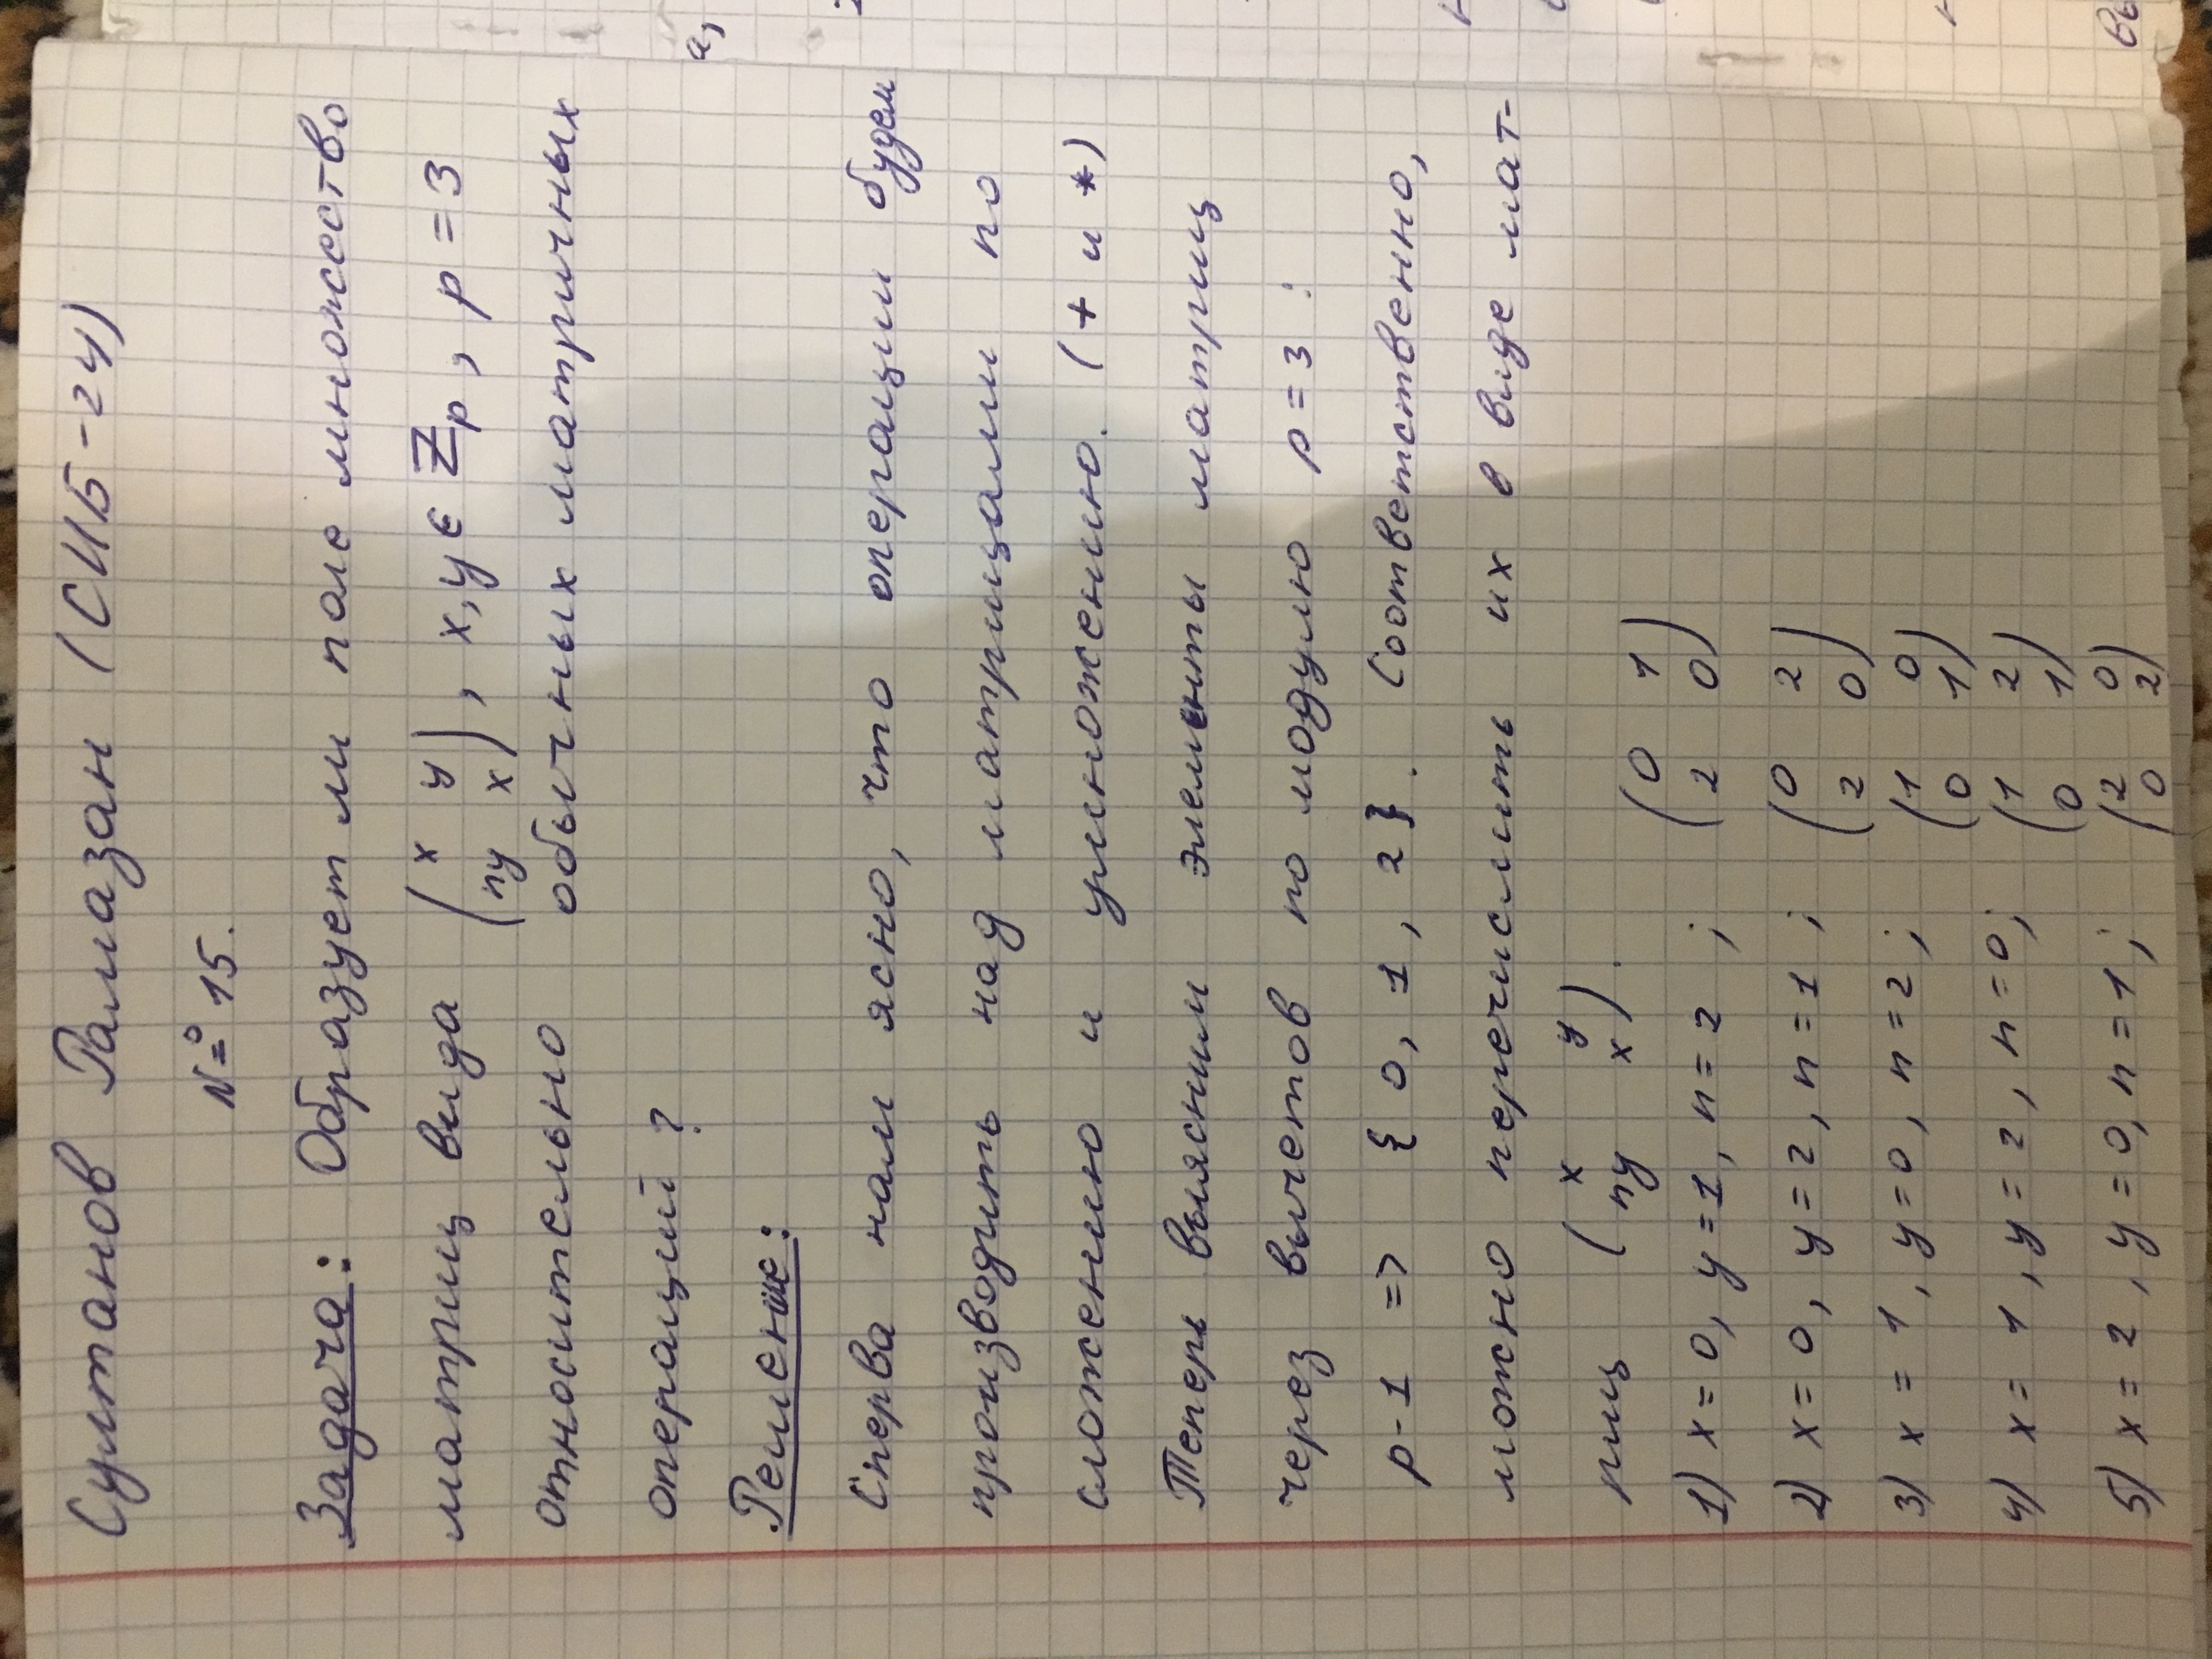 Султанов Рамазан (СИБ-24)
№ 15.
Задача: Образует ли поле множество
матриц вида (x y ny x), x,y ∈ Zp, p = 3
относительно обычных матричных
операций?
Решение:
Сперва нам ясно, что операции будем
производить над матрицами по
сложению и умножению. (+ и *)
Теперь выясним элементы матриц
через вычетов по модулю p = 3 :
p-1 => {0, 1, 2}. Соответственно,
можно перечислить их в виде мат-
риц (x y ny x).
1) x = 0, y = 1, n = 2 ; (0 1 2 0)
2) x = 0, y = 2, n = 1 ; (0 2 2 0)
3) x = 1, y = 0, n = 2 ; (1 0 0 1)
4) x = 1, y = 2, n = 0; (1 2 0 1)
5) x = 2, y = 0, n = 1 ; (2 0 0 2)
а,